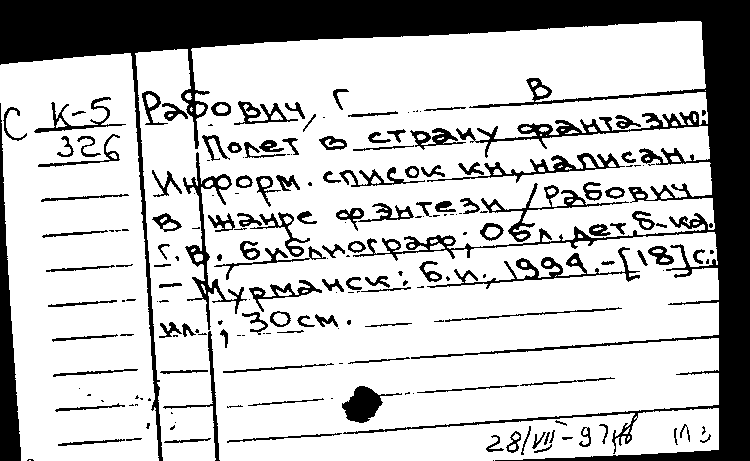 С К-5 Рабович, Г В
326 Полет в страну фантазию:
Информ. список кн., написан.
в жанре фэнтези / Рабович
Г. В., библиограф; Обл. дет. б-ка.
– Мурманск: б.и., 1994. – [18] с.:
ил.; 30 см.
28/VII – 97